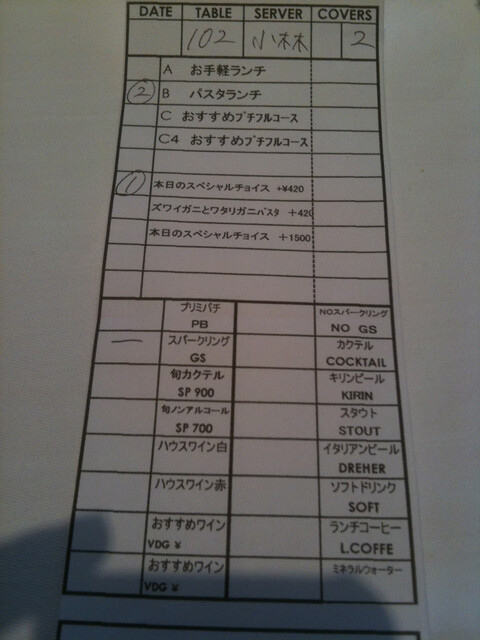 DATE TABLE SERVER COVERS
102 小林 2
A お手軽ランチ
② B パスタランチ
C おすすめプチフルコース
C4 おすすめプチフルコース
① 本日のスペシャルチョイス +¥420
ズワイガニとワタリガニパスタ +420
本日のスペシャルチョイス +1500
プリミパチ NOスパークリング
PB NO GS
一 スパークリング カクテル
GS COCKTAIL
旬カクテル キリンビール
SP 900 KIRIN
旬ノンアルコール スタウト
SP 700 STOUT
ハウスワイン白 イタリアンビール
DREHER
ハウスワイン赤 ソフトドリンク
SOFT
おすすめワイン ランチコーヒー
VDG ¥ L.COFFE
おすすめワイン ミネラルウォーター
VDG ¥